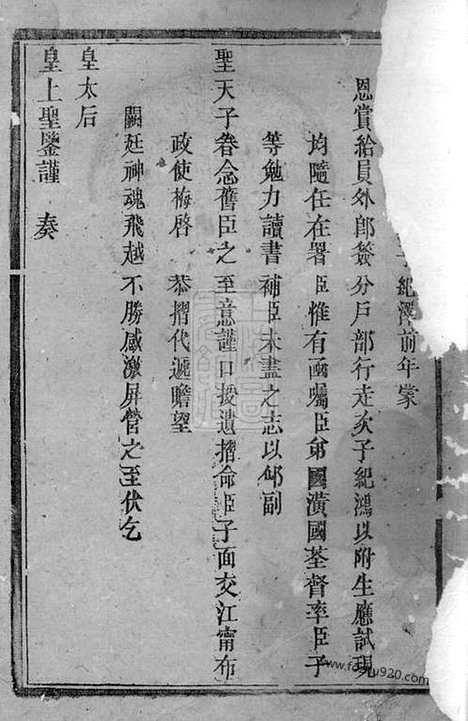 紀澤前年蒙
恩賞給員外郎簽分戶部行走次子紀鴻以附生應試現
均隨任在署臣惟有函囑臣弟國潢國荃督率臣子
等勉力讀書補臣未盡之志以仰副
聖天子眷念舊臣之至意謹口授遺摺命臣子面交江甯布
政使梅啓 恭摺代遞瞻望
闕廷神魂飛越不勝感激屏營之至伏乞
皇太后
皇上聖鑒謹 奏
www.fozhu920.com